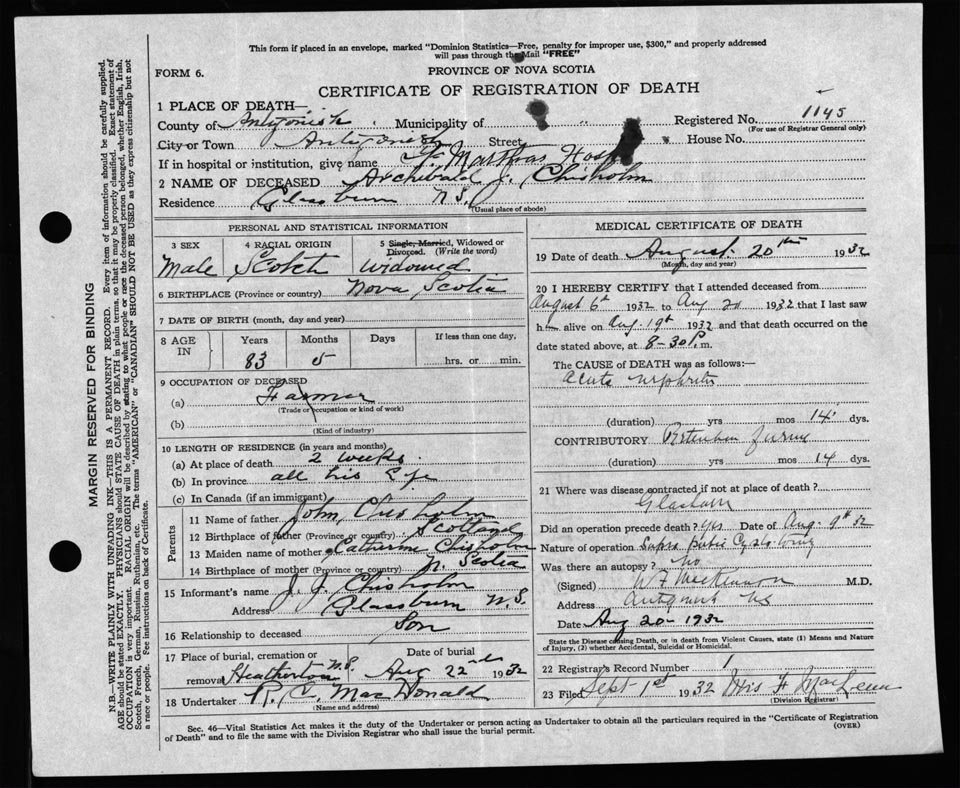 This form if placed in an envelope, marked "Dominion Statistics—Free, penalty for improper use, $300," and properly addressed
will pass through the Mail "FREE"
FORM 6.
PROVINCE OF NOVA SCOTIA
CERTIFICATE OF REGISTRATION OF DEATH
1 PLACE OF DEATH—
County of Antigonish Municipality of Registered No. 1145
(For use of Registrar General only)
City or Town Antigonish Street House No.
If in hospital or institution, give name St. Marthas Hosp
2 NAME OF DECEASED Archibald J. Chisholm
Residence Glassburn N.S.
(Usual place of abode)
PERSONAL AND STATISTICAL INFORMATION
3 SEX 4 RACIAL ORIGIN 5 Single, Married, Widowed or Divorced. (Write the word)
Male Scotch Widowed
6 BIRTHPLACE (Province or country) Nova Scotia
7 DATE OF BIRTH (month, day and year)
8 AGE IN Years Months Days If less than one day,
83 5 hrs. or min.
9 OCCUPATION OF DECEASED
(a) Farmer
(Trade or occupation or kind of work)
(b)
(Kind of industry)
10 LENGTH OF RESIDENCE (in years and months)
(a) At place of death 2 weeks
(b) In province all his Life
(c) In Canada (if an immigrant)
Parents
11 Name of father John Chisholm
12 Birthplace of father (Province or country) Scotland
13 Maiden name of mother Catherine Chisholm
14 Birthplace of mother (Province or country) N. Scotia
15 Informant's name J. J. Chisholm
Address Glassburn N.S.
16 Relationship to deceased Son
17 Place of burial, cremation or removal Heatherton N.S. Date of burial Aug 22nd 1932
18 Undertaker R. C. MacDonald
(Name and address)
MEDICAL CERTIFICATE OF DEATH
19 Date of death August 20th 1932
(Month, day and year)
20 I HEREBY CERTIFY that I attended deceased from
August 6th 1932 to Aug 20 1932 that I last saw
h alive on Aug. 19th 1932 and that death occurred on the
date stated above, at 8-30 P.m.
The CAUSE of DEATH was as follows:—
Acute nephritis
(duration) yrs mos 14 dys.
CONTRIBUTORY
(duration) yrs mos 14 dys.
21 Where was disease contracted if not at place of death?
Did an operation precede death? Yes Date of Aug. 9th 32
Nature of operation Supra pubic Cystotomy
Was there an autopsy? No
(Signed) W F MacKinnon M.D.
Address Antigonish NS
Date Aug 20-1932
State the Disease causing Death, or in death from Violent Causes, state (1) Means and Nature
of Injury, (2) whether Accidental, Suicidal or Homicidal.
22 Registrar's Record Number 1
23 Filed Sept 1st 1932
(Division Registrar)
Sec. 46—Vital Statistics Act makes it the duty of the Undertaker or person acting as Undertaker to obtain all the particulars required in the "Certificate of Registration
of Death" and to file the same with the Division Registrar who shall issue the burial permit.
(OVER)
MARGIN RESERVED FOR BINDING
N.B.—WRITE PLAINLY WITH UNFADING INK—THIS IS A PERMANENT RECORD. Every item of information should be carefully supplied.
AGE should be stated EXACTLY. PHYSICIANS should STATE CAUSE OF DEATH in plain terms, so that it may be properly classified. Exact statement of
OCCUPATION is very important. RACIAL ORIGIN will be described by stating to what people or race the deceased person belonged, whether English, Irish,
Scotch, French, German, Russian, Ruthenian, etc. The terms "AMERICAN" or "CANADIAN" SHOULD NOT BE USED as they express citizenship but not
a race or people. See instructions on back of Certificate.